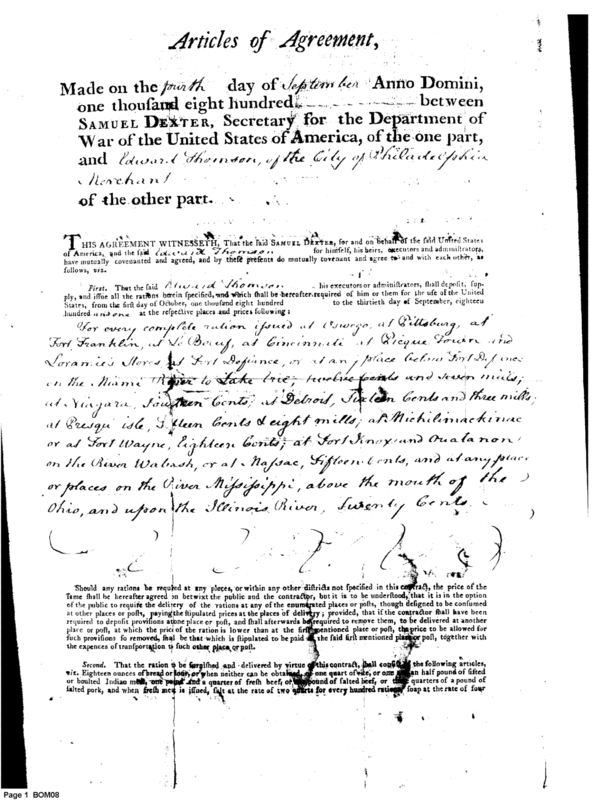 Articles of Agreement,
Made on the fourth day of September Anno Domini,
one thousand eight hundred between
SAMUEL DEXTER, Secretary for the Department of
War of the United States of America, of the one part,
and Edward Thomson, of the City of Philadelphia
Merchant
of the other part.
THIS AGREEMENT WITNESSETH, That the said SAMUEL DEXTER, for and on behalf of the said United States
of America, and the said Edward Thomson for himself, his heirs, executors and administrators,
have mutually covenanted and agreed, and by these presents do mutually covenant and agree to and with each other, as
follows, viz.
First. That the said Edward Thomson his executors or administrators, shall deposit, sup-
ply, and issue all the rations herein specified, and which shall be hereafter required of him or them for the use of the United
States, from the first day of October, one thousand eight hundred to the thirtieth day of September, eighteen
hundred and one at the respective places and prices following:
For every complete ration issued at Oswego, at Pittsburg, at
Fort Franklin, at Le Boeuf, at Cincinnati at Picque Town and
Loramie's Stores, at Fort Defiance, or at any place below Fort Defiance
on the Miami River to Lake Erie, twelve Cents and seven mills;
at Niagara, fourteen Cents; at Detroit, Sixteen Cents and three mills;
at Presqu' isle, Cents & eight mills; at Michilimackinac
or at Fort Wayne, Eighteen Cents; at Fort Knox and Ouatanon
on the River Wabash, or at Massac, Fifteen Cents, and at any place
or places on the River Mississippi, above the mouth of the
Ohio, and upon the Illinois River, Twenty Cents.
Should any rations be required at any places, or within any other districts not specified in this contract, the price of the
same shall be hereafter agreed on betwixt the public and the contractor, but it is to be understood, that it is in the option
of the public to require the delivery of the rations at any of the enumerated places or posts, though designed to be consumed
at other places or posts, paying the stipulated prices at the places of delivery; provided, that if the contractor shall have been
required to deposit provisions at one place or post, and shall afterwards be required to remove them, to be delivered at another
place or post, at which the price of the ration is lower than at the first mentioned place or post, the price to be allowed for
such provisions so removed, shall be that which is stipulated to be paid at the said first mentioned place or post, together with
the expences of transportation to such other place or post.
Second. That the ration to be furnished and delivered by virtue of this contract, shall consist of the following articles,
viz. Eighteen ounces of bread or flour, or when neither can be obtained, of one quart of rice, or one and an half pound of sifted
or boulted Indian meal, one pound and a quarter of fresh beef, or one pound of salted beef, or three quarters of a pound of
salted pork, and when fresh meat is issued, salt at the rate of two quarts for every hundred rations, soap at the rate of four
Page 1 BOM08